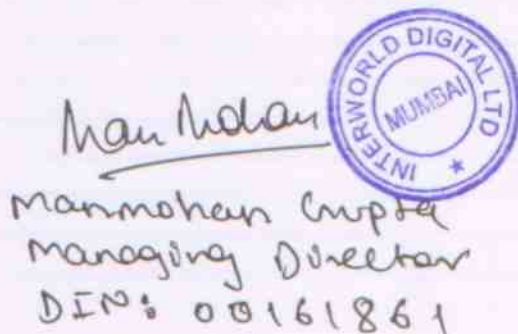 Man Mohan
INTERWORLD DIGITAL LTD
MUMBAI
Manmohan Gupta
Managing Director
DIN: 00161861